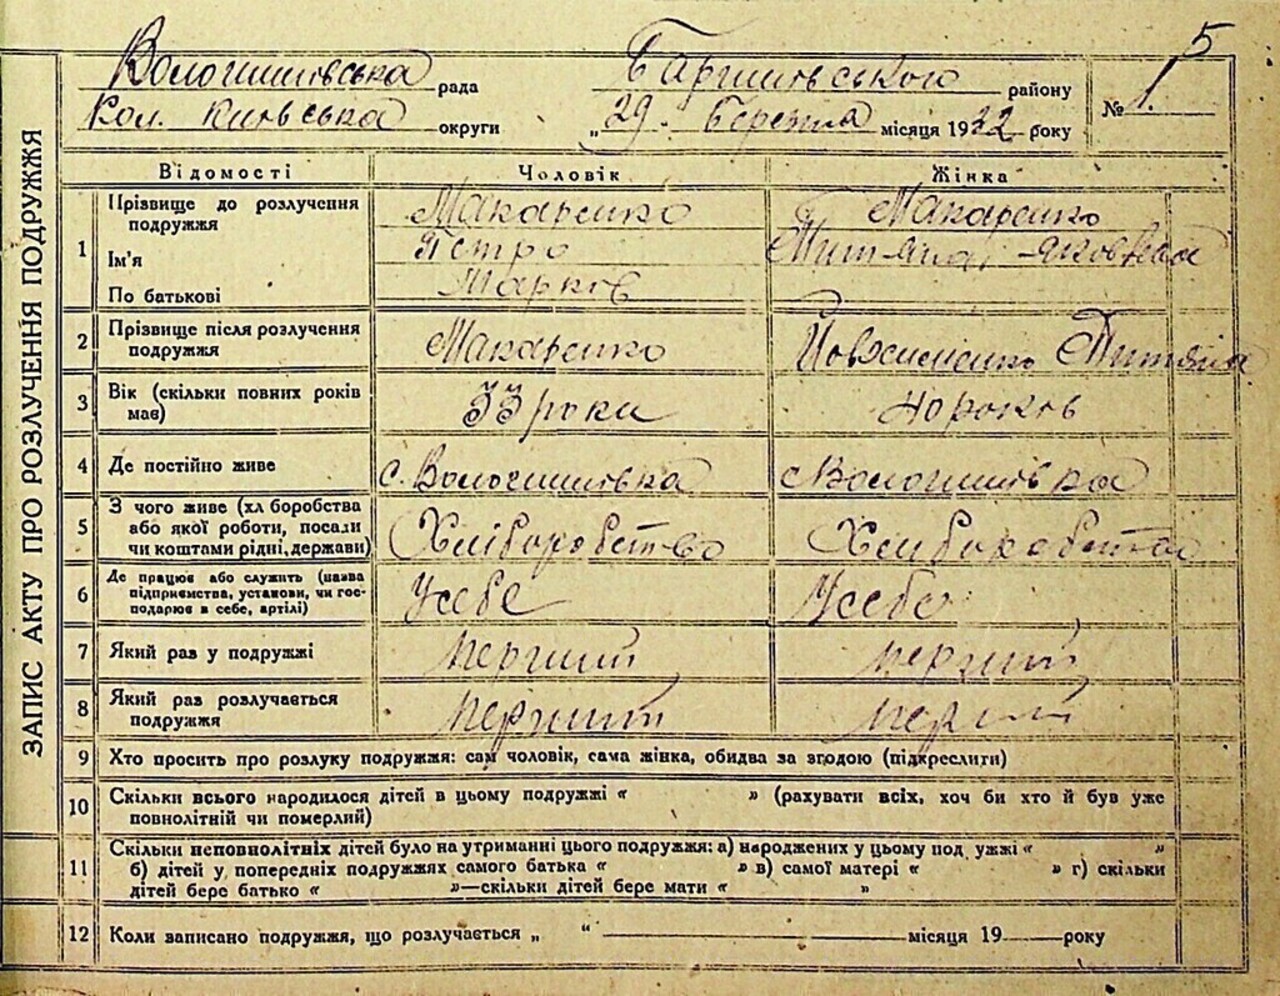 5
Вологшитвська рада Баришівського району № 1.
Кол. Київська округи „29. Березня місяця 1932 року
ЗАПИС АКТУ ПРО РОЗЛУЧЕННЯ ПОДРУЖЖЯ
Відомості Чоловік Жінка
1 Прізвище до розлучення подружжя Макаренко Макаренко
Ім'я Петро Титяна, Яковлева
По батькові Марків
2 Прізвище після розлучення подружжя Макаренко Титяна
3 Вік (скільки повних років має) 33 роки 40 років
4 Де постійно живе с. Вологшитвка с Вологшитвка
5 З чого живе (хл боробства або якої роботи, посали чи коштами рідні, держави) Хліборобство Хлиборобства
6 Де працює або служить (назва підприємства, установи, чи господарює в себе, артілі) Усебе Усебе
7 Який раз у подружжі перший перший
8 Який раз розлучається подружжя перший перший
9 Хто просить про розлуку подружжя: сам чоловік, сама жінка, обидва за згодою (підкреслити)
10 Скільки всього народилося дітей в цьому подружжі « » (рахувати всіх, хоч би хто й був уже
повнолітній чи померлий)
11 Скільки неповнолітніх дітей було на утриманні цього подружжя: а) народжених у цьому под ужжі « »
б) дітей у попередніх подружжях самого батька « » в) самої матері « » г) скільки
дітей бере батько « »—скільки дітей бере мати « »
12 Коли записано подружжя, що розлучається „ “ місяця 19 року